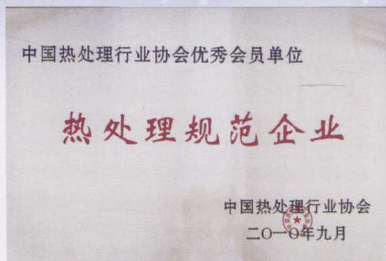 中国热处理行业协会优秀会员单位
热处理规范企业
中国热处理行业协会
二〇一〇年九月